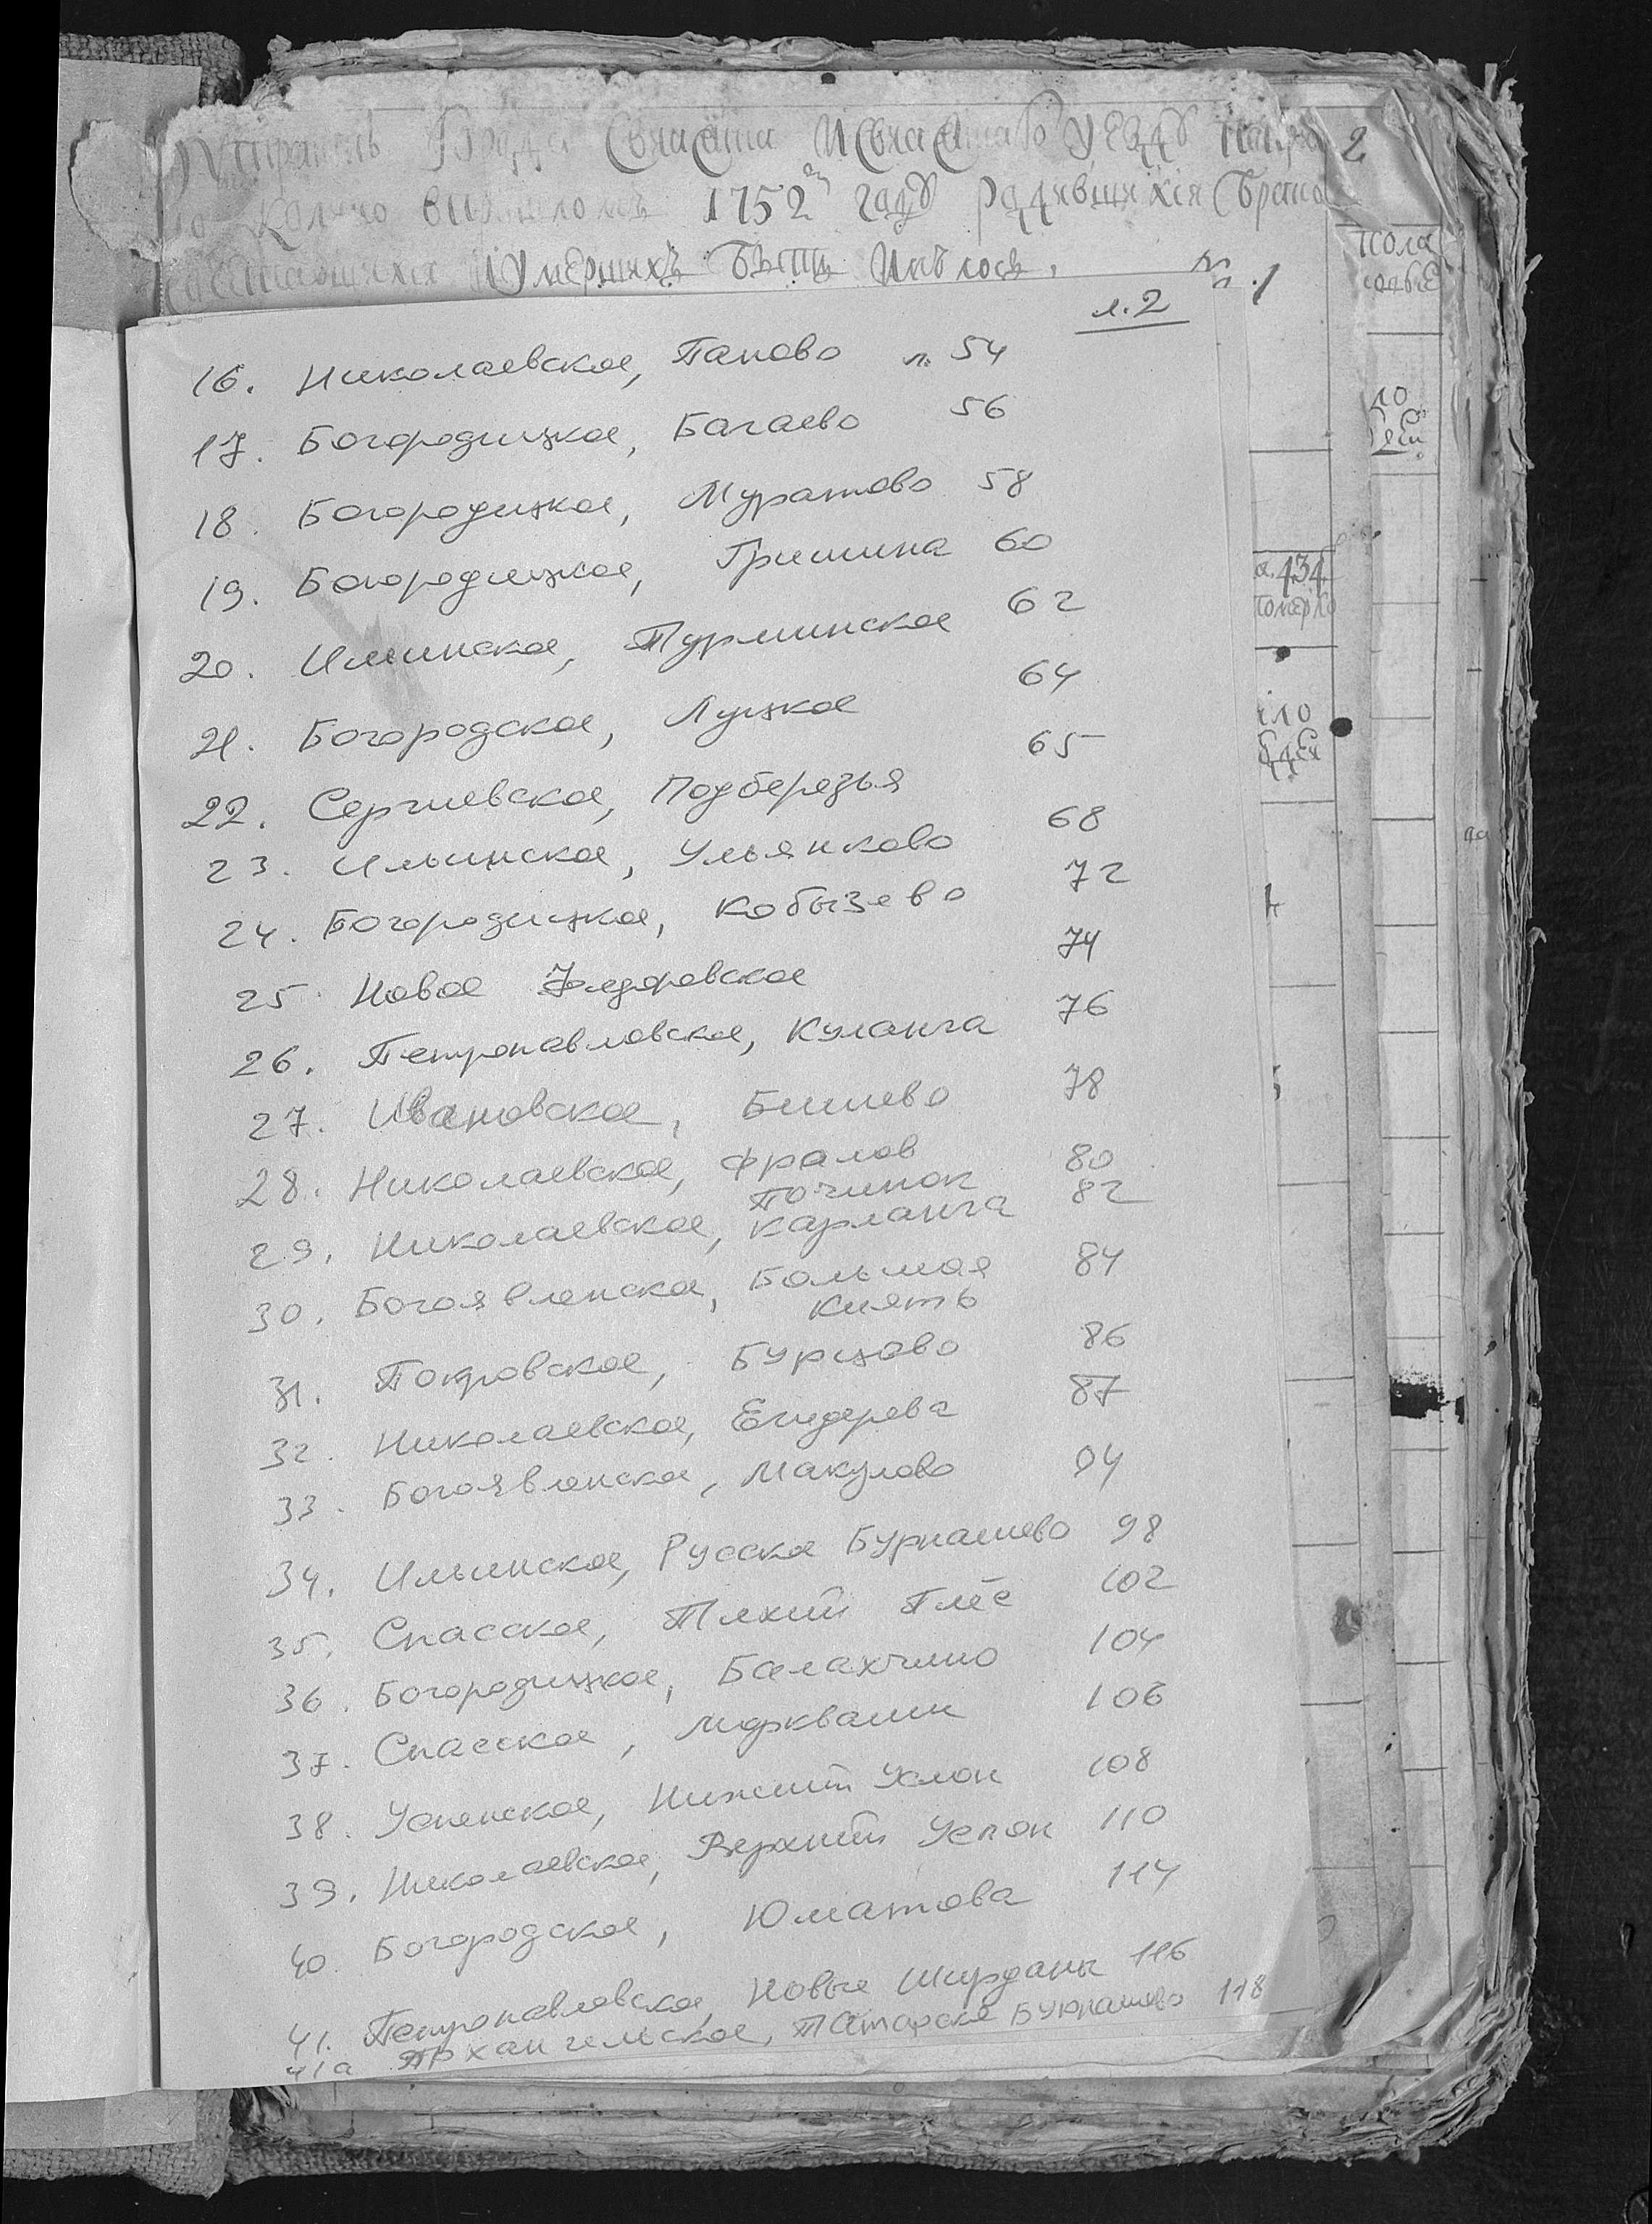 2
1752 году
И Умершихъ
№ 1
л.2
16. Николаевское, Паново л. 54
17. Богородицкое, Багаево 56
18. Богородицкое, Муратово 58
19. Богородицкое, Гришина 60
20. Ильинское, Турминское 62
21. Богородское, Луцкое 64
22. Сергиевское, Подберезья 65
23. Ильинское, Ульянково 68
24. Богородицкое, Кобызево 72
25. Новое Фёдоровское 74
26. Петропавловское, Куланга 76
27. Ивановское, Бишево 78
28. Николаевское, Фролов 80
Починок
29. Николаевское, Карланга 82
30. Богоявленское, Большая 84
Киять
31. Покровское, Бурцово 86
32. Николаевское, Егидерева 87
33. Богоявленское, Макулово 94
34. Ильинское, Русское Бурнашево 98
35. Спасское, Тихий Плёс 102
36. Богородицкое, Балахчино 104
37. Спасское, Моркваши 106
38. Успенское, Нижний Услон 108
39. Николаевское, Верхний Услон 110
40. Богородское, Юматова 114
41. Петропавловское, Новые Ширданы 116
41а Архангельское, Татарское Бурнашево 118